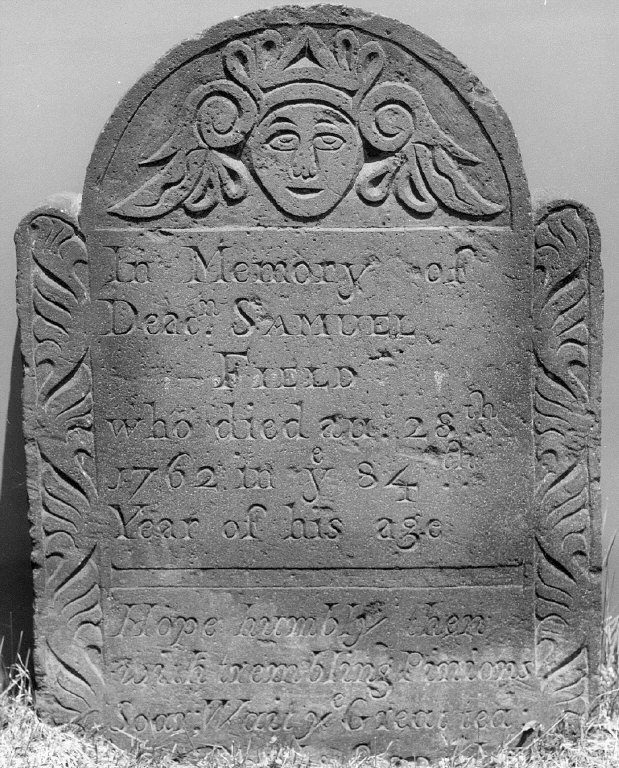 In Memory of
Deacn. SAMUEL
FIELD
who died au: 28th
1762 in ye 84th
Year of his age
Hope humbly then
with trembling Pinions
Soar; Wait ye Great tea